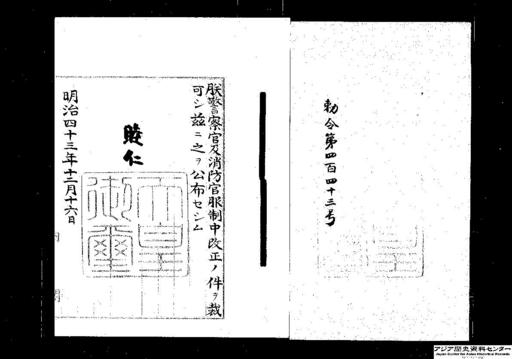 勅令第四百四十三号
朕警察官及消防官服制中改正ノ件ヲ裁
可シ茲ニ之ヲ公布セシム
睦仁
天皇
御璽
明治四十三年十二月十六日
アジア歴史資料センター
Japan Center for Asian Historical Records